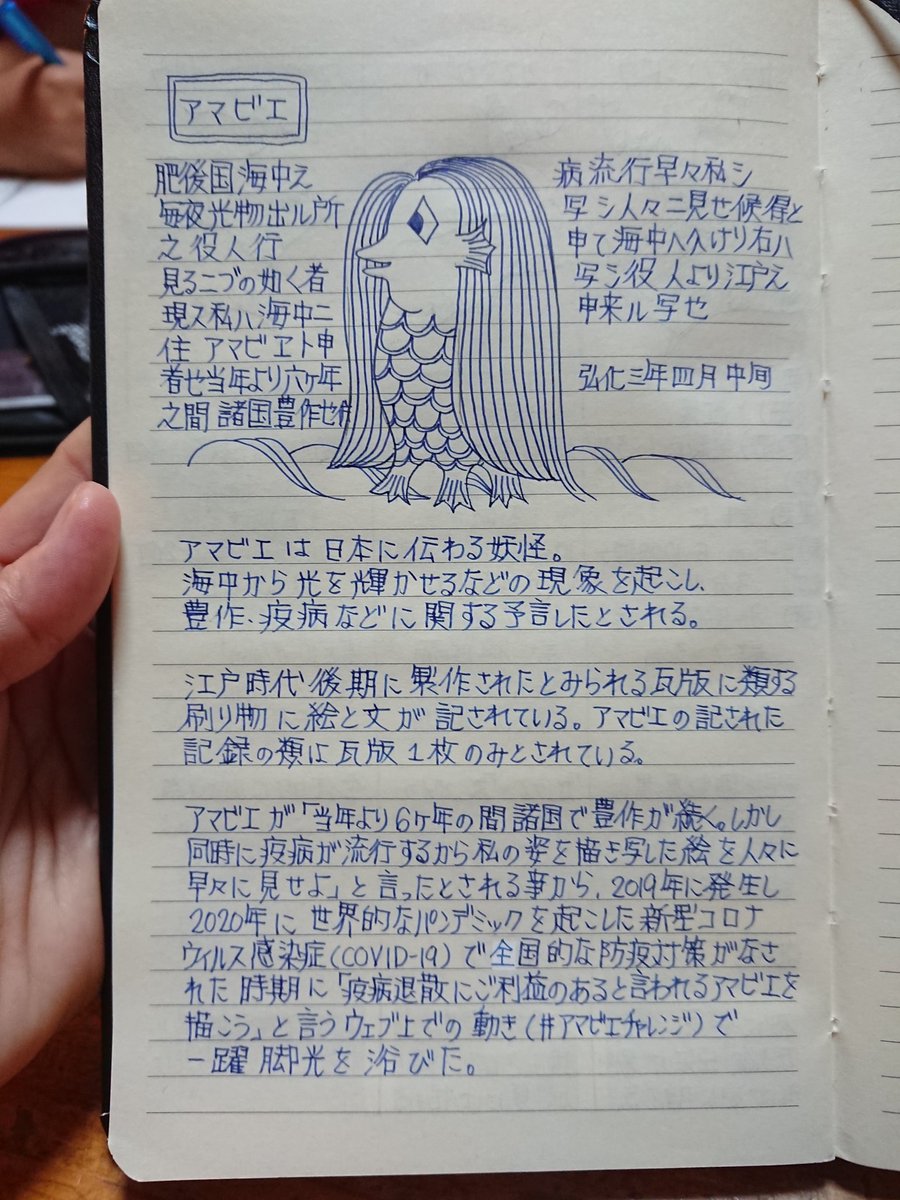 アマビエ
肥後国海中え
毎夜光物出ル所
之役人行
見る二づの如く者
現ス私ハ海中二
住アマビヱト申
者也当年より六ヶ年
之間諸国豊作也但
病流行早々私シ
写シ人々二見せ候得と
申て海中へ入けり右ハ
写シ役人より江戸え
申来ル写也
弘化三年四月中旬
アマビエは日本に伝わる妖怪。
海中から光を輝かせるなどの現象を起こし、
豊作・疫病などに関する予言したとされる。
江戸時代後期に製作されたとみられる瓦版に類する
刷り物に絵と文が記されている。アマビエの記された
記録の類は瓦版1枚のみとされている。
アマビエが「当年より6ケ年の間諸国で豊作が続く。しかし
同時に疫病が流行するから私の姿を描き写した絵を人々に
早々に見せよ」と言ったとされる事から、2019年に発生し
2020年に世界的なパンデミックを起こした新型コロナ
ウィルス感染症(COVID-19)で全国的な防疫対策がなさ
れた時期に「疫病退散にご利益のあると言われるアマビエを
描こう」と言うウェブ上での動き(#アマビエチャレンジ)で
一躍脚光を浴びた。